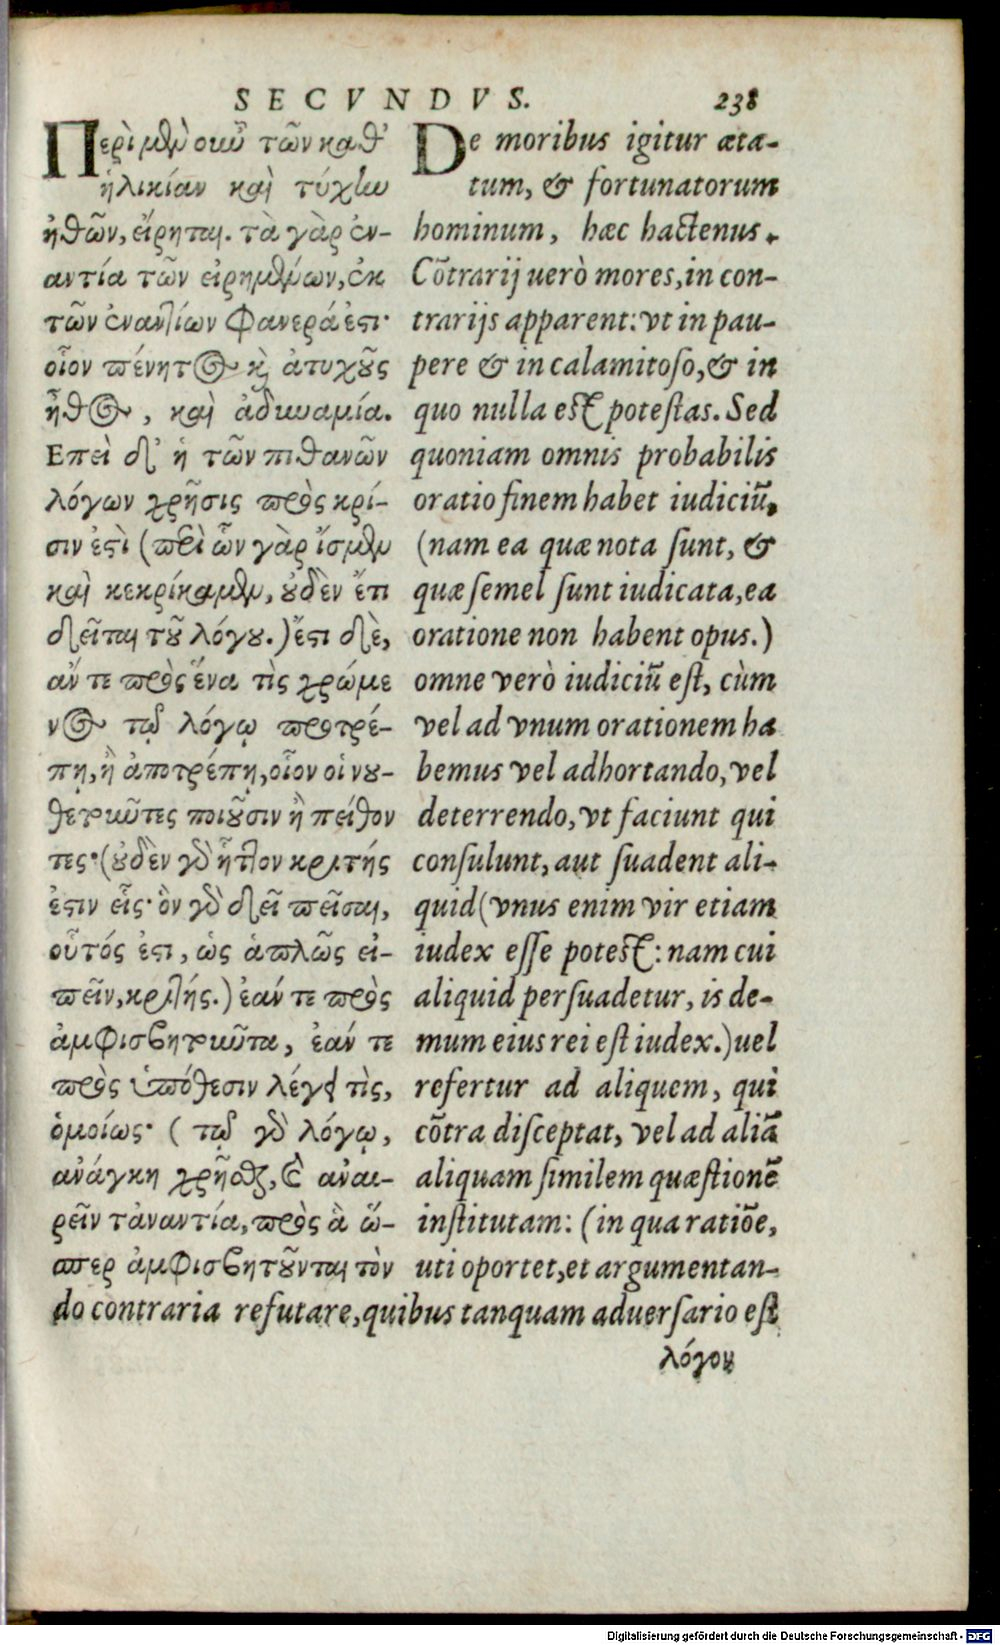 SECVNDVS. 238
Περὶ μὲν οὖν τῶν καθ'
ἡλικίαν καὶ τύχην
ἠθῶν, εἴρηται. τὰ γὰρ ἐν-
αντία τῶν εἰρημένων, ἐκ
τῶν ἐναντίων φανερά ἐστι·
οἷον πένητος καὶ ἀτυχοῦς
ἦθος, καὶ ἀδυναμία.
Επεὶ δ' ἡ τῶν πιθανῶν
λόγων χρῆσις πρὸς κρί-
σιν ἐστὶ (περὶ ὧν γὰρ ἴσμεν
καὶ κεκρίκαμεν, οὐδὲν ἔτι
δεῖται τοῦ λόγου.) ἔστι δὲ,
ἄν τε πρὸς ἕνα τὶς χρώμε
νος τῷ λόγῳ προτρέ-
πῃ, ἢ ἀποτρέπῃ, οἷον οἱ νου-
θετοῦντες ποιοῦσιν ἢ πείθον
τες· (οὐδὲν γὰρ ἧττον κριτής
ἐστιν εἷς· ὃν γὰρ δεῖ πεῖσαι,
οὗτός ἐστι, ὡς ἁπλῶς εἰ-
πεῖν, κριτής.) ἐάν τε πρὸς
ἀμφισβητοῦντα, ἐάν τε
πρὸς ὑπόθεσιν λέγῃ τὶς,
ὁμοίως· (τῷ γὰρ λόγῳ,
ἀνάγκη χρῆσθαι, καὶ ἀναι-
ρεῖν τἀναντία, πρὸς ἃ ὥ-
σπερ ἀμφισβητοῦνται τὸν
De moribus igitur æta-
tum, & fortunatorum
hominum, hæc hactenus.
Cōtrarij uerò mores, in con-
trarijs apparent: vt in pau-
pere & in calamitoso, & in
quo nulla est potestas. Sed
quoniam omnis probabilis
oratio finem habet iudiciū,
(nam ea quæ nota sunt, &
quæ semel sunt iudicata, ea
oratione non habent opus.)
omne verò iudiciū est, cùm
vel ad vnum orationem ha
bemus vel adhortando, vel
deterrendo, vt faciunt qui
consulunt, aut suadent ali-
quid (vnus enim vir etiam
iudex esse potest: nam cui
aliquid persuadetur, is de-
mum eius rei est iudex.) uel
refertur ad aliquem, qui
cōtra disceptat, vel ad aliā
aliquam similem quæstionē
institutam: (in qua ratiōe,
uti oportet, et argumentan-
do contraria refutare, quibus tanquam aduersario est
λόγον
Digitalisierung gefördert durch die Deutsche Forschungsgemeinschaft - DFG